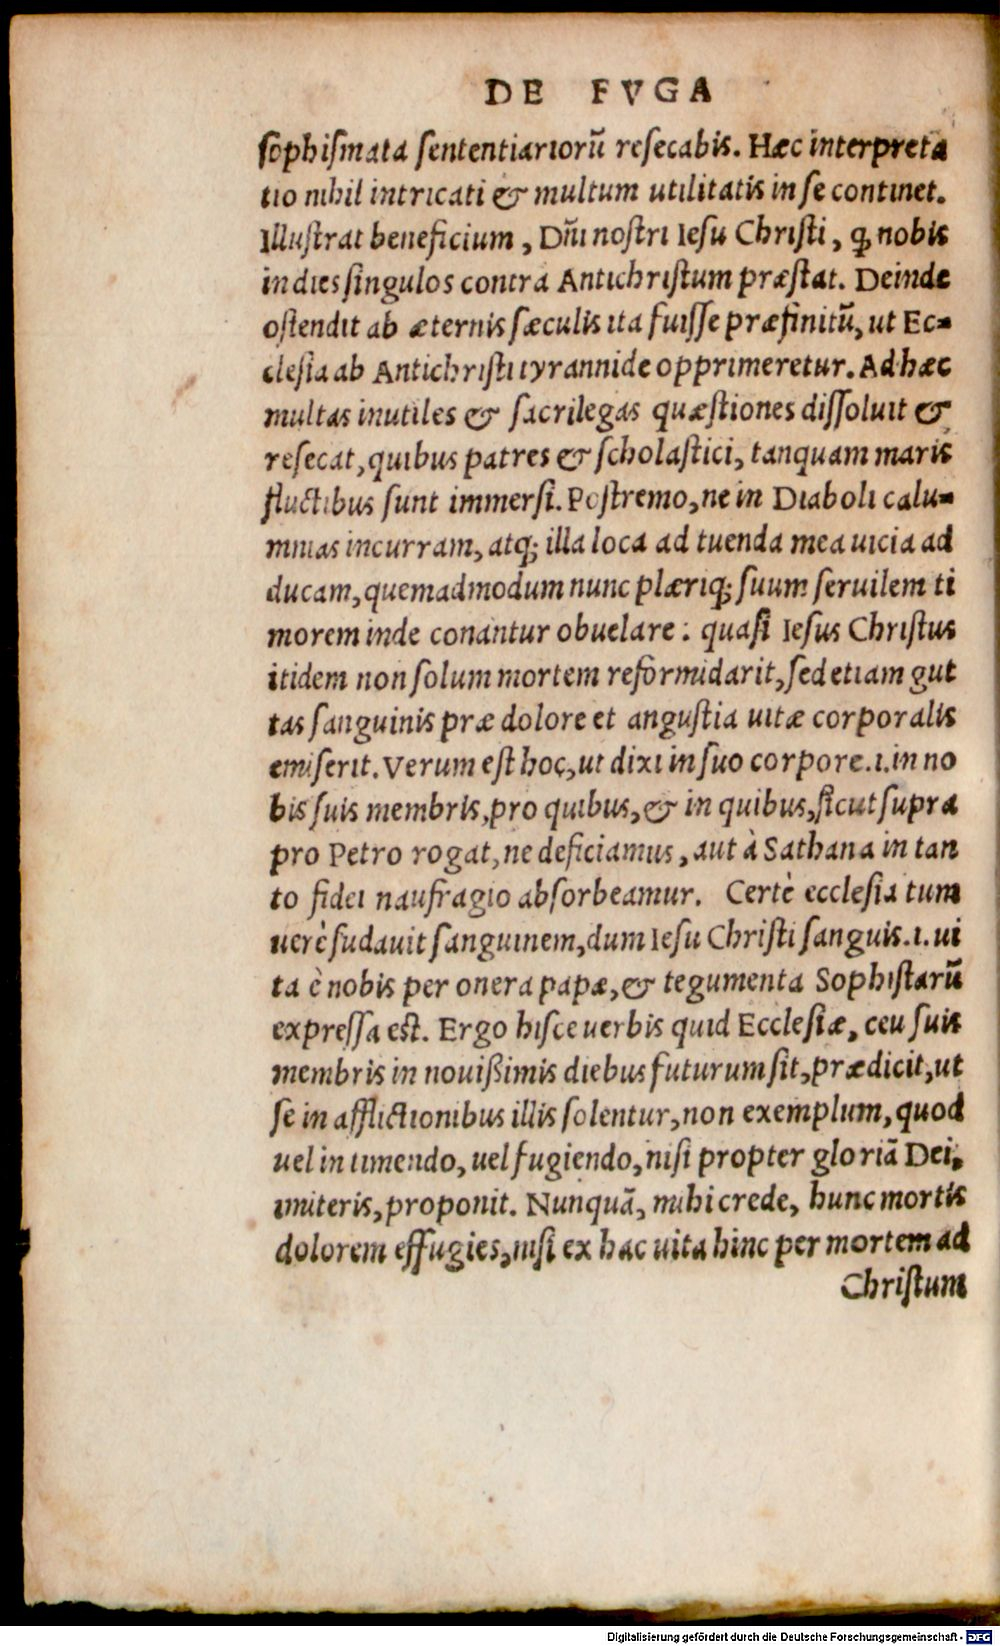 DE FVGA
sophiſmata ſententiarιorũ reſecabis. Hæc interpreta
tio nihil intricati & multum utilitatis in ſe continet.
Illuſtrat beneficium, Dñi noſtri Ieſu Chriſti, ꝙ nobis
in dies ſingulos contra Antichriſtum præſtat. Deinde
oſtendit ab æternis ſæculis ita fuiſſe præfinitũ, ut Ec-
cleſia ab Antichriſti tyrannide opprimeretur. Ad hæc
multas inutiles & ſacrilegas quæſtiones diſſoluit &
reſecat, quibus patres & ſcholaſtici, tanquam maris
fluctibus ſunt immerſi. Poſtremo, ne in Diaboli calu-
mnias incurram, atq; illa loca ad tuenda mea uicia ad
ducam, quemadmodum nunc plæriq; ſuum ſeruilem ti
morem inde conantur obuelare: quaſi Ieſus Chriſtus
itidem non ſolum mortem reformidarit, ſed etiam gut
tas ſanguinis præ dolore et anguſtia uitæ corporalis
emiſerit. Verum eſt hoc, ut dixi in ſuo corpore .i. in no
bis ſuis membris, pro quibus, & in quibus, ſicut ſupra
pro Petro rogat, ne deficiamus, aut à Sathana in tan
to fidei naufragio abſorbeamur. Certè eccleſia tum
uerè ſudauit ſanguinem, dum Ieſu Chriſti ſanguis .i. ui
ta è nobis per onera papæ, & tegumenta Sophiſtarũ
expreſſa eſt. Ergo hiſce uerbis quid Eccleſiæ, ceu ſuis
membris in nouißimis diebus futurum ſit, prædicit, ut
ſe in afflictionibus illis ſolentur, non exemplum, quod
uel in timendo, uel fugiendo, niſi propter gloriã Dei,
imiteris, proponit. Nunquã, mihi crede, hunc mortis
dolorem effugies, niſi ex hac uita hinc per mortem ad
Chriſtum
Digitalisierung gefördert durch die Deutsche Forschungsgemeinschaft - DFG